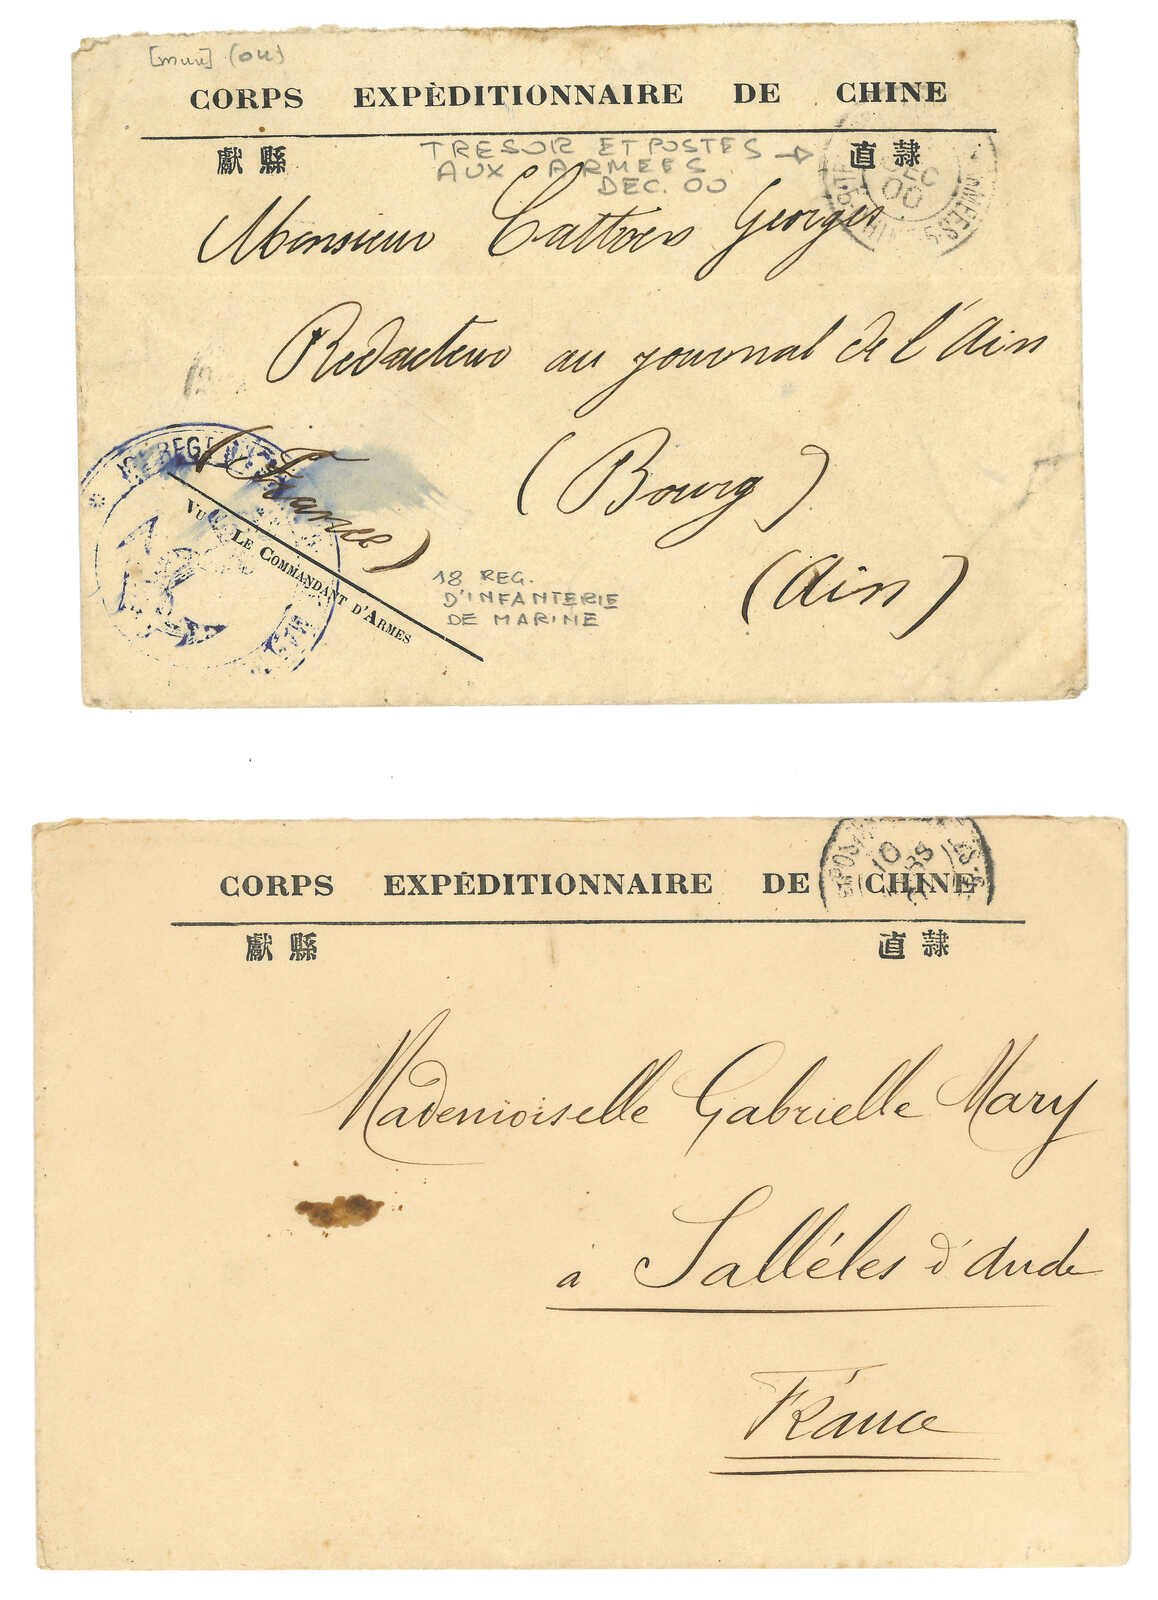 [muu] (ou)
CORPS EXPÈDITIONNAIRE DE CHINE
獻縣 直隷
TRESOR ET POSTES →
AUX ARMEES
DEC. 00
DEC
00
Monsieur Georges
Redacteur au journal de l'Ain
(France) (Bourg)
(Ain)
REGT
VU LE COMMANDANT D'ARMES
18 REG.
D'INFANTERIE
DE MARINE
10
CORPS EXPÉDITIONNAIRE DE CHINE
獻縣 直隷
Mademoiselle Gabrielle Mary
à Sallèles d'Aude
France